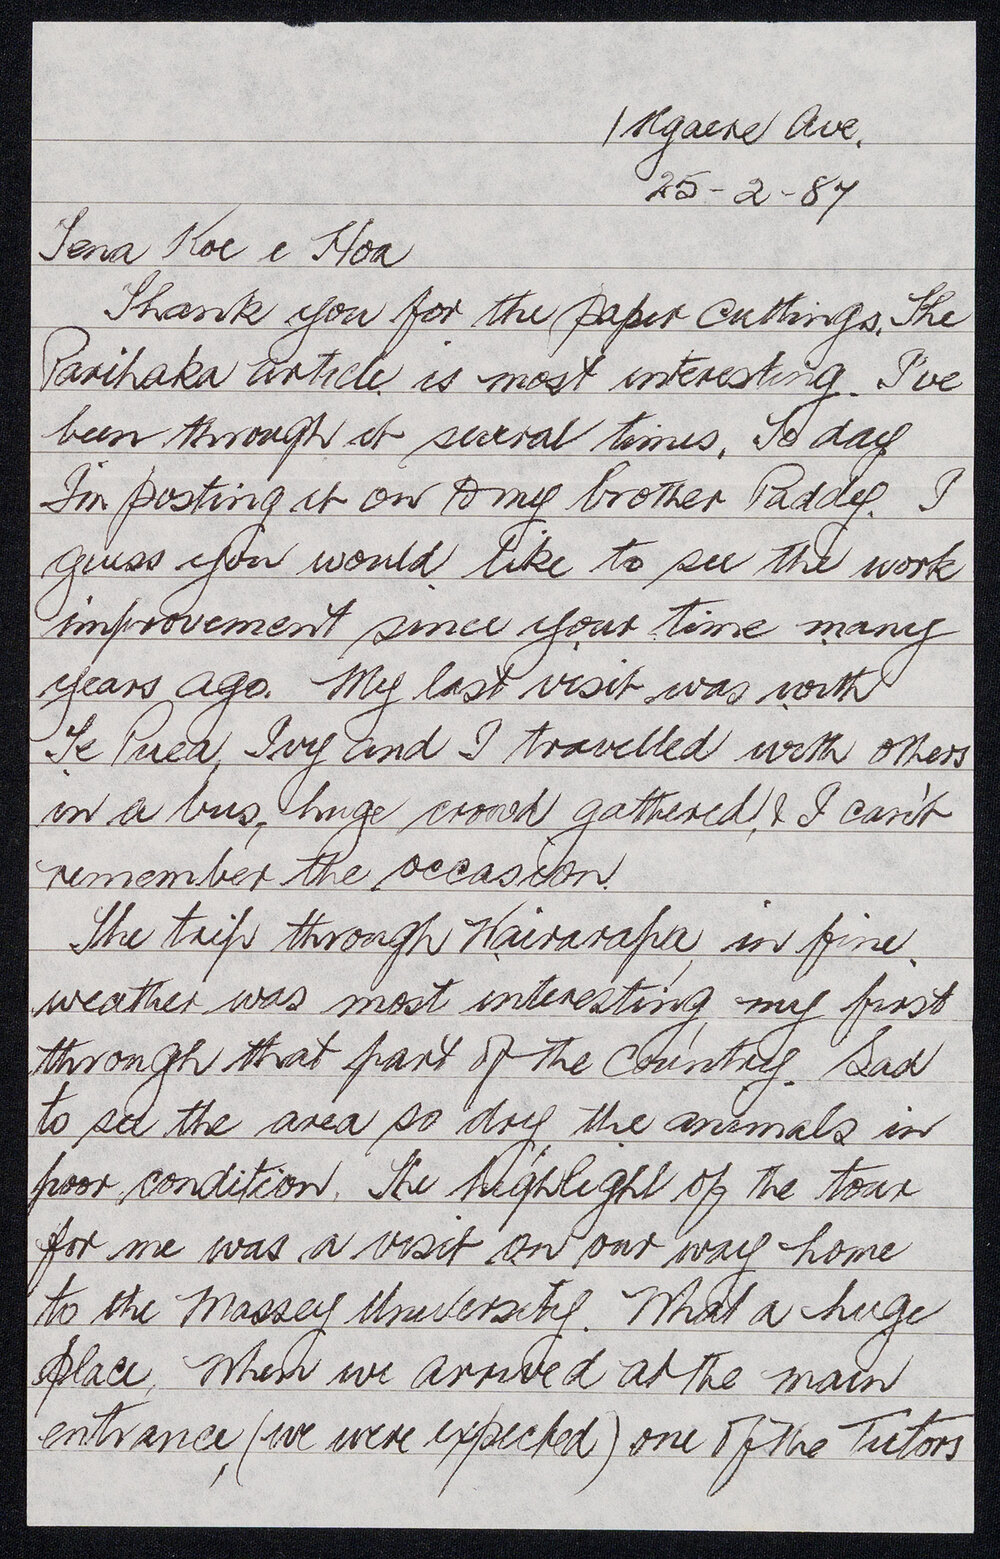 1 Ngaere Ave.
25-2-87
Tena Koe e Hoa
Thank you for the paper cuttings. The
Parihaka article is most interesting. I've
been through it several times. To day
I'm posting it on to my brother Paddy. I
guess you would like to see the work
improvement since your time many
years ago. My last visit was with
Te Puea, Ivy and I travelled with others
in a bus, huge crowd gathered, & I can't
remember the occasion.
The trip through Wairarapa in fine
weather was most interesting, my first
through that part of the country. Sad
to see the area so dry, the animals in
poor condition. The highlight of the tour
for me was a visit on our way home
to the Massey University. What a huge
place, When we arrived at the main
entrance, (we were expected) one of the Tutors